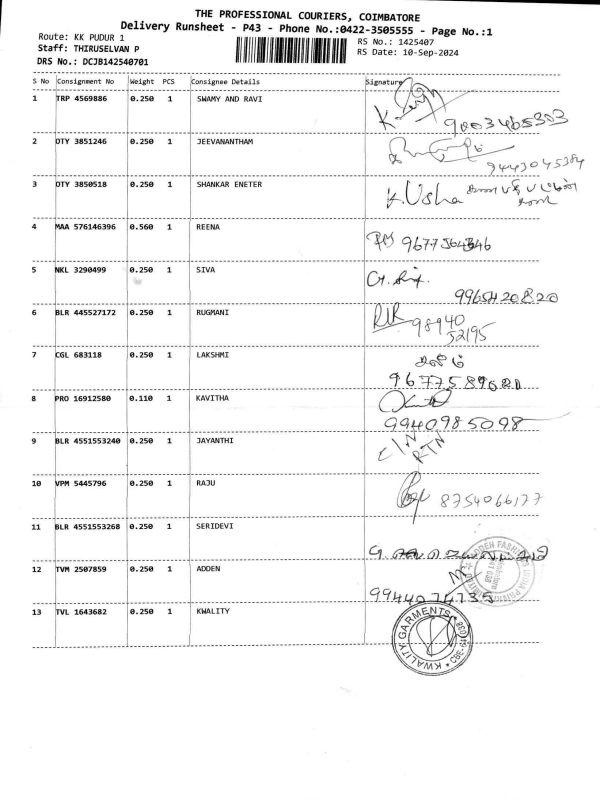 THE PROFESSIONAL COURIERS, COIMBATORE
Delivery Runsheet - P43 - Phone No.:0422-3505555 - Page No.:1
Route: KK PUDUR 1
Staff: THIRUSELVAN P
DRS No.: DCJB142540701
RS No.: 1425407
RS Date: 10-Sep-2024
S No Consignment No Weight PCS Consignee Details Signature
1 TRP 4569886 0.250 1 SWAMY AND RAVI
9003465303
2 OTY 3851246 0.250 1 JEEVANANTHAM
9443045384
3 OTY 3850518 0.250 1 SHANKAR ENETER K.Usha
4 MAA 576146396 0.560 1 REENA
5 NKL 3290499 0.250 1 SIVA
9965420820
6 BLR 445527172 0.250 1 RUGMANI
98940
52195
7 CGL 683118 0.250 1 LAKSHMI
8 PRO 16912580 0.110 1 KAVITHA
9940985098
9 BLR 4551553240 0.250 1 JAYANTHI
RTN
10 VPM 5445796 0.250 1 RAJU
8754066177
11 BLR 4551553268 0.250 1 SERIDEVI
12 TVM 2507859 0.250 1 ADDEN
9944074735
13 TVL 1643682 0.250 1 KWALITY
KWALITY GARMENTS